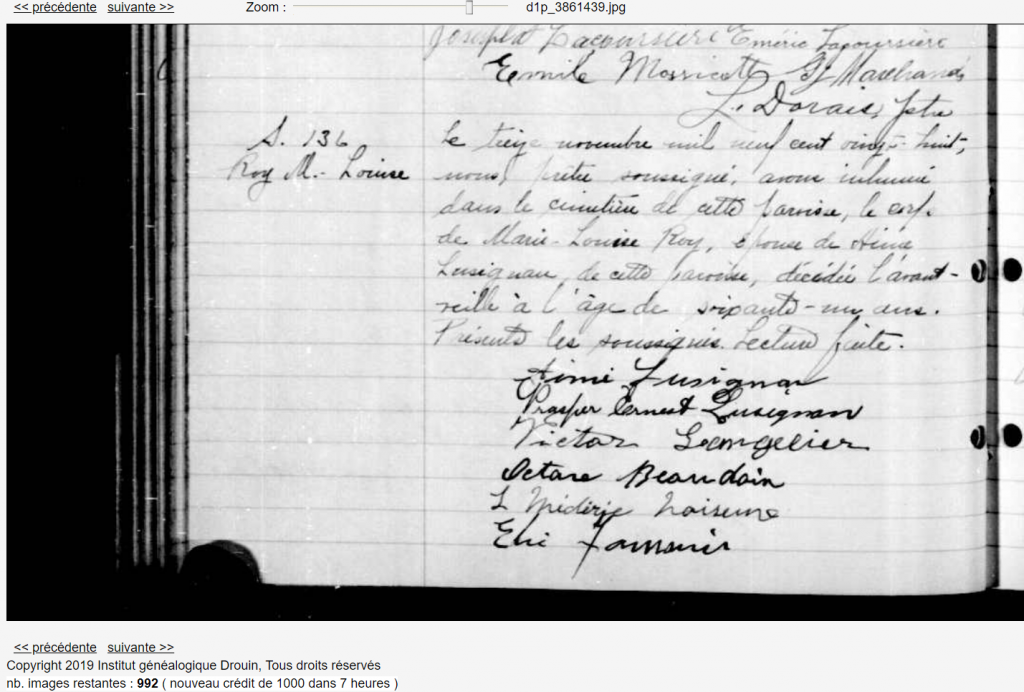 << précédente suivante >> Zoom : d1p_3861439.jpg
Josaphat Lacoursière Emério Lacoursière
Emile Marchand
L. Dorais, ptre
S. 136
Roy M.- Louise
Le treize novembre mil neuf cent vingt-huit,
nous, prêtre soussigné, avons inhumé
dans le cimetière de cette paroisse, le corps
de Marie-Louise Roy, épouse de Aimé
Lusignan, de cette paroisse, décédée l'avant-
veille à l'âge de soixante-un ans.
Présents les soussignés. Lecture faite.
Aimé Lusignan
Prosper Ernest Lusignan
Victor Langelier
Octave Beaudoin
<< précédente suivante >>
Copyright 2019 Institut généalogique Drouin, Tous droits réservés
nb. images restantes : 992 ( nouveau crédit de 1000 dans 7 heures )